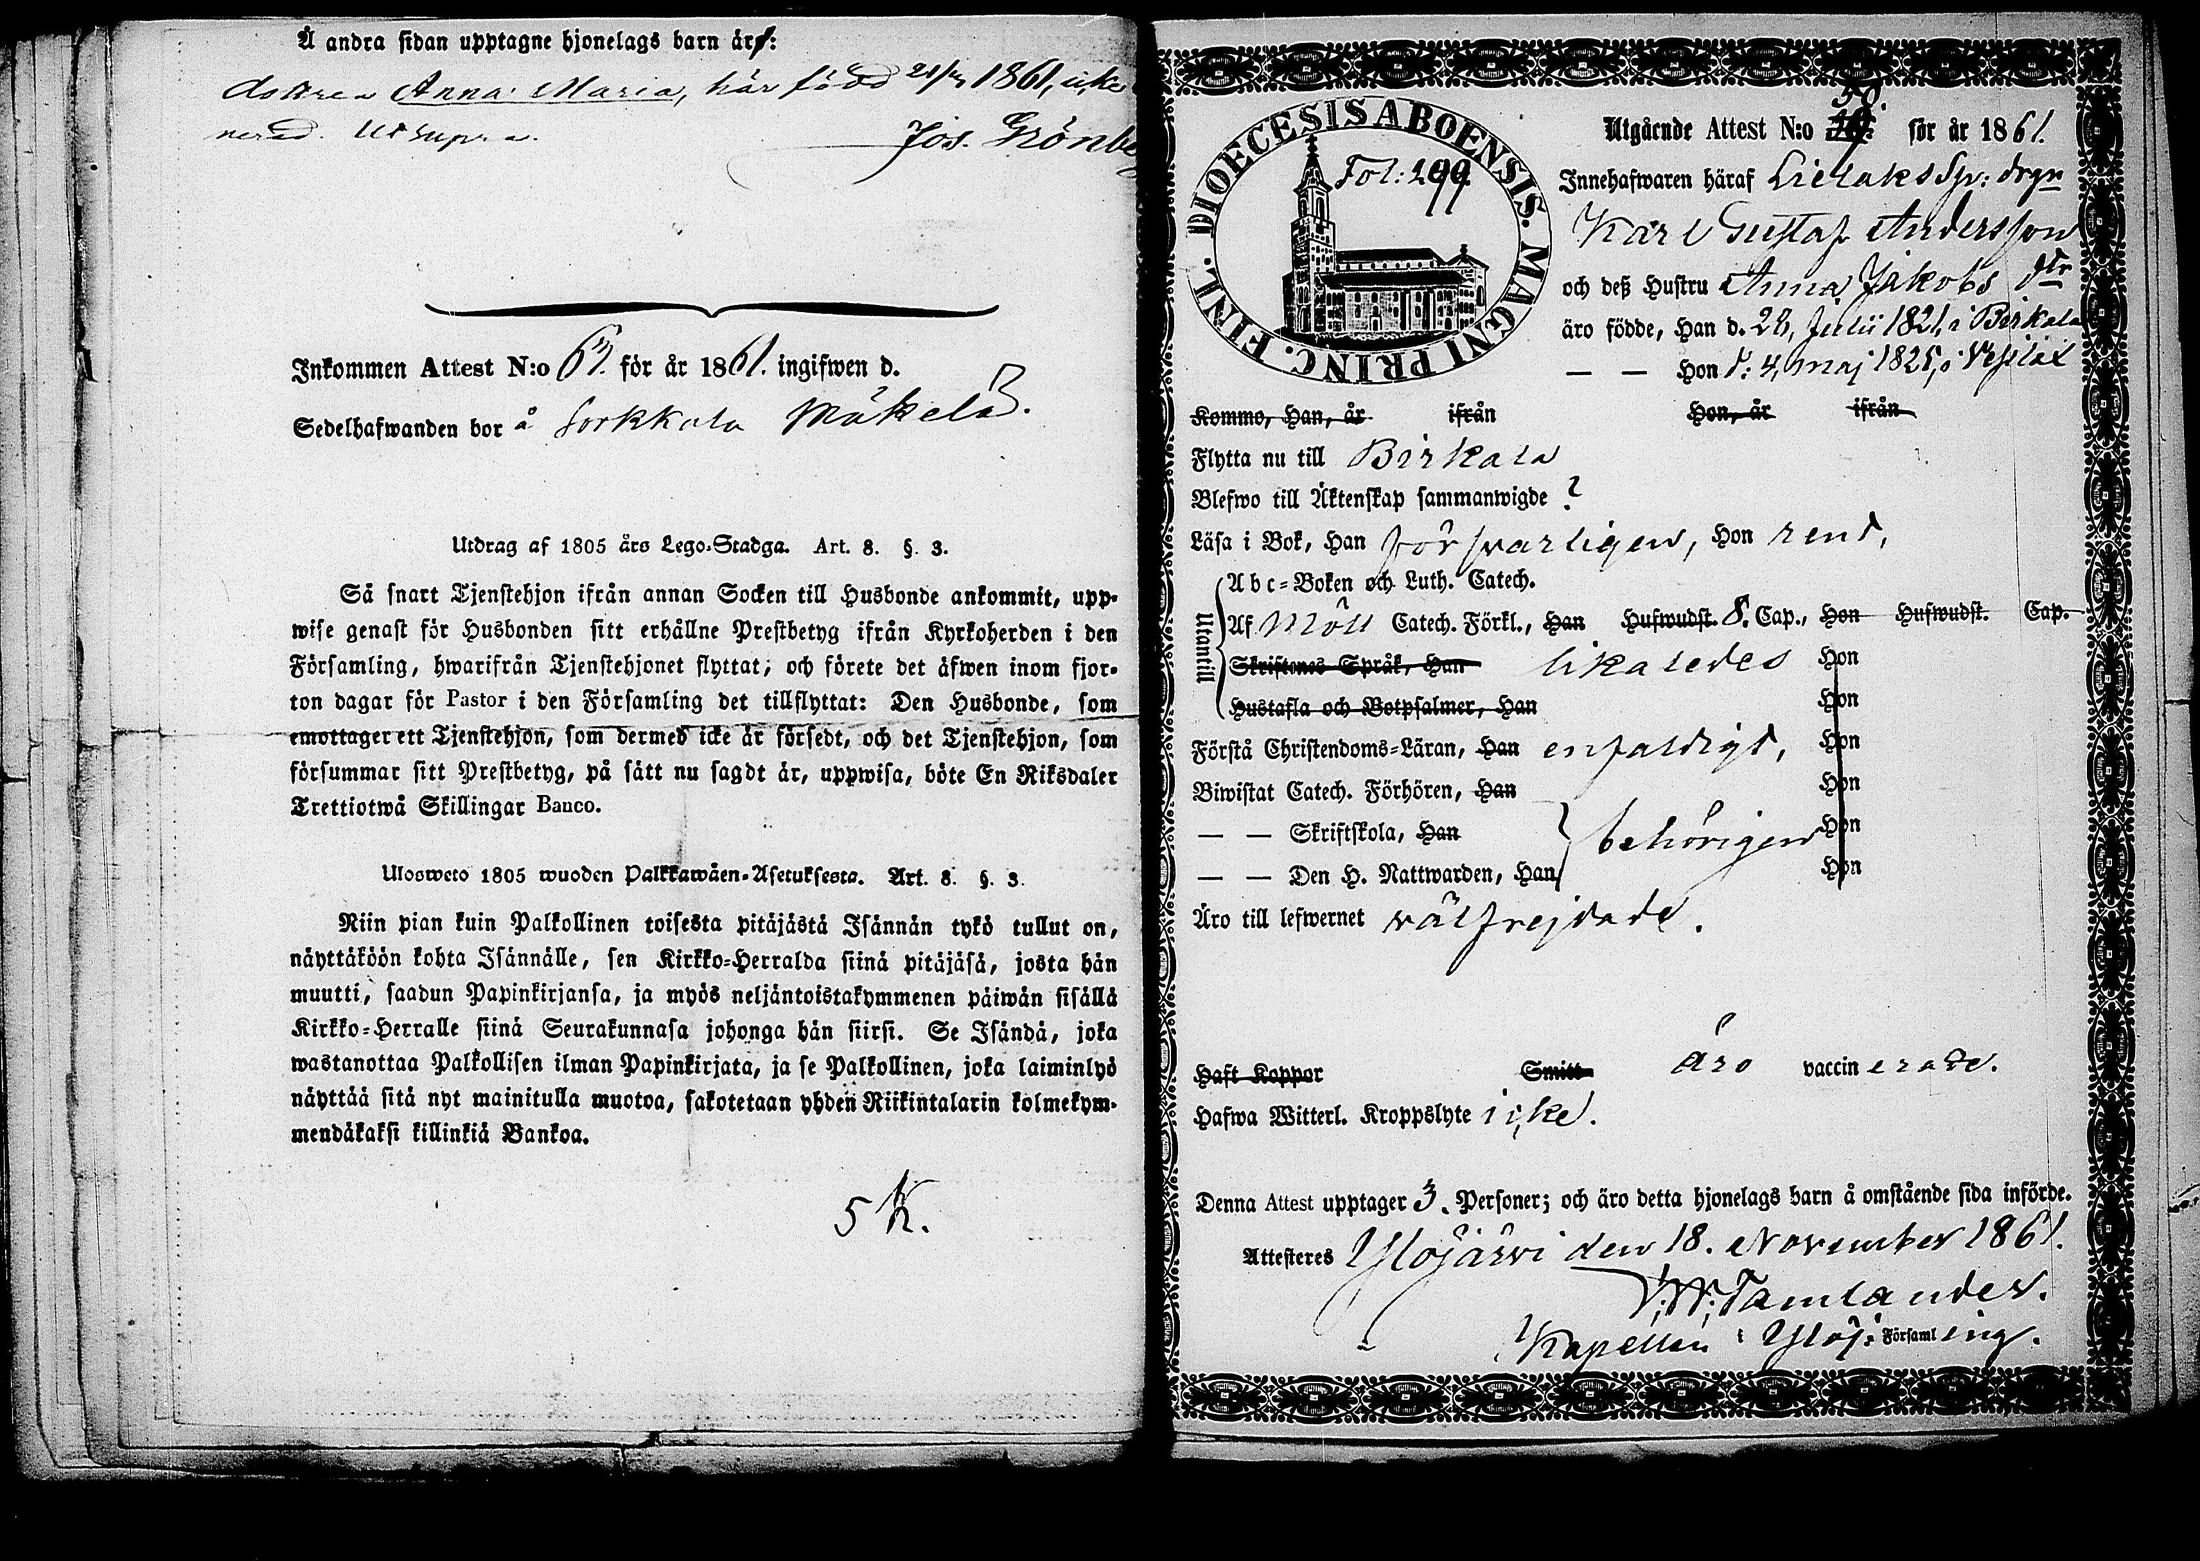 Å andra sidan upptagne hjonelags barn är:
dottren Anna Maria, här född 1861, icke
nerad. Ut supra.
Jos. Grönbe
Inkommen Attest N:o för år 1861. ingifwen d.
Sedelhafwanden bor å Sorkkala Mäkelä.
Utdrag af 1805 års Lego-Stadga. Art. 8. §. 3.
Så snart Tjenstehjon ifrån annan Socken till Husbonde ankommit, upp-
wise genast för Husbonden sitt erhållne Prestbetyg ifrån Kyrkoherden i den
Församling, hwarifrån Tjenstehjonet flyttat; och förete det äfwen inom fjor-
ton dagar för Pastor i den Församling det tillflyttat: Den Husbonde, som
emottager ett Tjenstehjon, som dermed icke är försedt, och det Tjenstehjon, som
försummar sitt Prestbetyg, på sätt nu sagdt är, uppwisa, böte En Riksdaler
Trettiotwå Skillingar Banco.
Ulosweto 1805 wuoden Palkkawäen-Asetuksesta. Art. 8. §. 3.
Niin pian kuin Palkollinen toisesta pitäjästä Isännän tykö tullut on,
näyttäköön kohta Isännälle, sen Kirkko-Herralda siinä pitäjäsä, josta hän
muutti, saadun Papinkirjansa, ja myös neljäntoistakymmenen päiwän sisällä
Kirkko-Herralle siinä Seurakunnasa johonga hän siirsi. Se Isändä, joka
wastanottaa Palkollisen ilman Papinkirjata, ja se Palkollinen, joka laiminlyö
näyttää sitä nyt mainitulla muotoa, sakotetaan yhden Riikintalarin kolmekym-
mendäkaksi killinkiä Bankoa.
5 K.
FINL. DIOECESIS ABOENSIS. MAGNI PRINC.
Fol: 299
Utgående Attest N:o 50 för år 1861.
Innehafwaren häraf Lielaks Sp: drgn
Karl Gustaf Andersson
och deß Hustru Anna Jakobs dtr
äro födde, Han d. 28, Julii 1821, i Birkala
— — Hon d: 4, maj 1825, i Vesilax
Kommo, Han, år ifrån Hon, år ifrån
Flytta nu till Birkala
Blefwo till Äktenskap sammanwigde ?
Läsa i Bok, Han försvarligen, Hon rent,
Utantill
Abc-Boken och Luth. Catech.
Af Möll Catech. Förkl., Han Hufwudst. 8. Cap., Hon Hufwudst. Cap.
Skriftenes Språk, Han likaledes Hon
Hustafla och Botpsalmer, Han Hon
Förstå Christendoms-Läran, Han enfaldigt, Hon
Biwistat Catech. Förhören, Han Hon
— — Skriftskola, Han behörigen Hon
— — Den H. Nattwarden, Han Hon
Äro till lefwernet välfrejdade.
Haft Koppor Smitt äro vaccinerade.
Hafwa Witterl. Kroppslyte icke.
Denna Attest upptager 3. Personer; och äro detta hjonelags barn å omstående sida införde.
Attesteres Ylöjärvi den 18. November 1861.
Tamlander.
Kapellan i Ylöj: Församling.